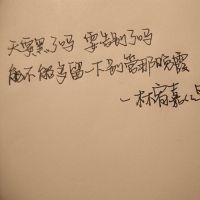 天要黑了吗 要告别了吗
能不能多留一下别管那晚霞
—林宥嘉